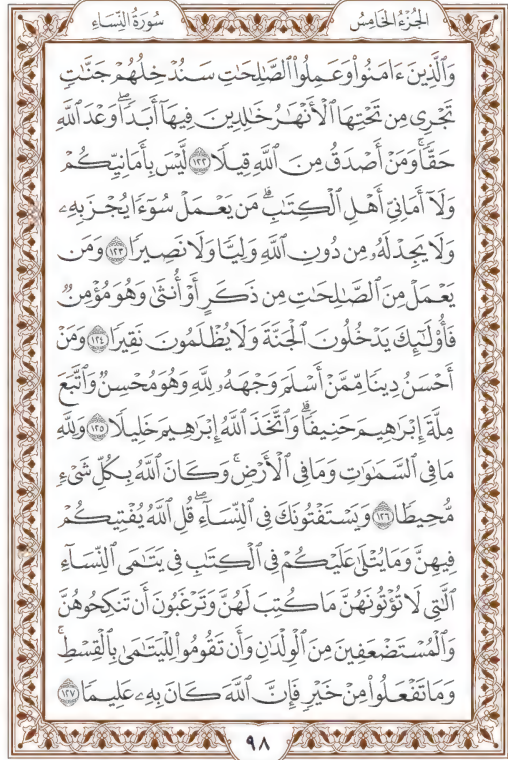 الجُزْءُ الخَامِسُ سُورَةُ النِّسَاءِ
وَٱلَّذِينَ ءَامَنُواْ وَعَمِلُواْ ٱلصَّٰلِحَٰتِ سَنُدْخِلُهُمْ جَنَّٰتٖ
تَجْرِي مِن تَحْتِهَا ٱلْأَنْهَٰرُ خَٰلِدِينَ فِيهَآ أَبَدٗاۖ وَعْدَ ٱللَّهِ
حَقّٗاۚ وَمَنْ أَصْدَقُ مِنَ ٱللَّهِ قِيلٗا ١٢٢ لَّيْسَ بِأَمَانِيِّكُمْ
وَلَآ أَمَانِيِّ أَهْلِ ٱلْكِتَٰبِۗ مَن يَعْمَلْ سُوٓءٗا يُجْزَ بِهِۦ
وَلَا يَجِدْ لَهُۥ مِن دُونِ ٱللَّهِ وَلِيّٗا وَلَا نَصِيرٗا ١٢٣ وَمَن
يَعْمَلْ مِنَ ٱلصَّٰلِحَٰتِ مِن ذَكَرٍ أَوْ أُنثَىٰ وَهُوَ مُؤْمِنٞ
فَأُوْلَٰٓئِكَ يَدْخُلُونَ ٱلْجَنَّةَ وَلَا يُظْلَمُونَ نَقِيرٗا ١٢٤ وَمَنْ
أَحْسَنُ دِينٗا مِّمَّنْ أَسْلَمَ وَجْهَهُۥ لِلَّهِ وَهُوَ مُحْسِنٞ وَٱتَّبَعَ
مِلَّةَ إِبْرَٰهِيمَ حَنِيفٗاۗ وَٱتَّخَذَ ٱللَّهُ إِبْرَٰهِيمَ خَلِيلٗا ١٢٥ وَلِلَّهِ
مَا فِي ٱلسَّمَٰوَٰتِ وَمَا فِي ٱلْأَرْضِۚ وَكَانَ ٱللَّهُ بِكُلِّ شَيْءٖ
مُّحِيطٗا ١٢٦ وَيَسْتَفْتُونَكَ فِي ٱلنِّسَآءِۖ قُلِ ٱللَّهُ يُفْتِيكُمْ
فِيهِنَّ وَمَا يُتْلَىٰ عَلَيْكُمْ فِي ٱلْكِتَٰبِ فِي يَتَٰمَى ٱلنِّسَآءِ
ٱلَّٰتِي لَا تُؤْتُونَهُنَّ مَا كُتِبَ لَهُنَّ وَتَرْغَبُونَ أَن تَنكِحُوهُنَّ
وَٱلْمُسْتَضْعَفِينَ مِنَ ٱلْوِلْدَٰنِ وَأَن تَقُومُواْ لِلْيَتَٰمَىٰ بِٱلْقِسْطِۚ
وَمَا تَفْعَلُواْ مِنْ خَيْرٖ فَإِنَّ ٱللَّهَ كَانَ بِهِۦ عَلِيمٗا ١٢٧
٩٨